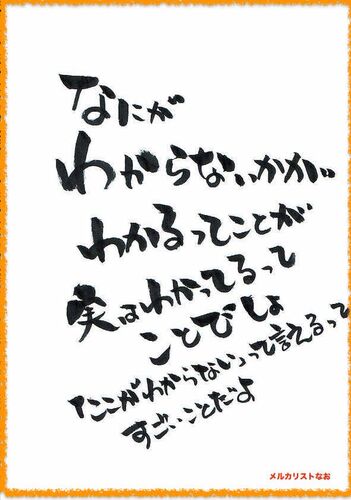 なにが
わからないかが
わかるってことが
実はわかってるって
ことでしょ
「ここがわからない」って言えるって
すごいことだよ
メルカリストなお